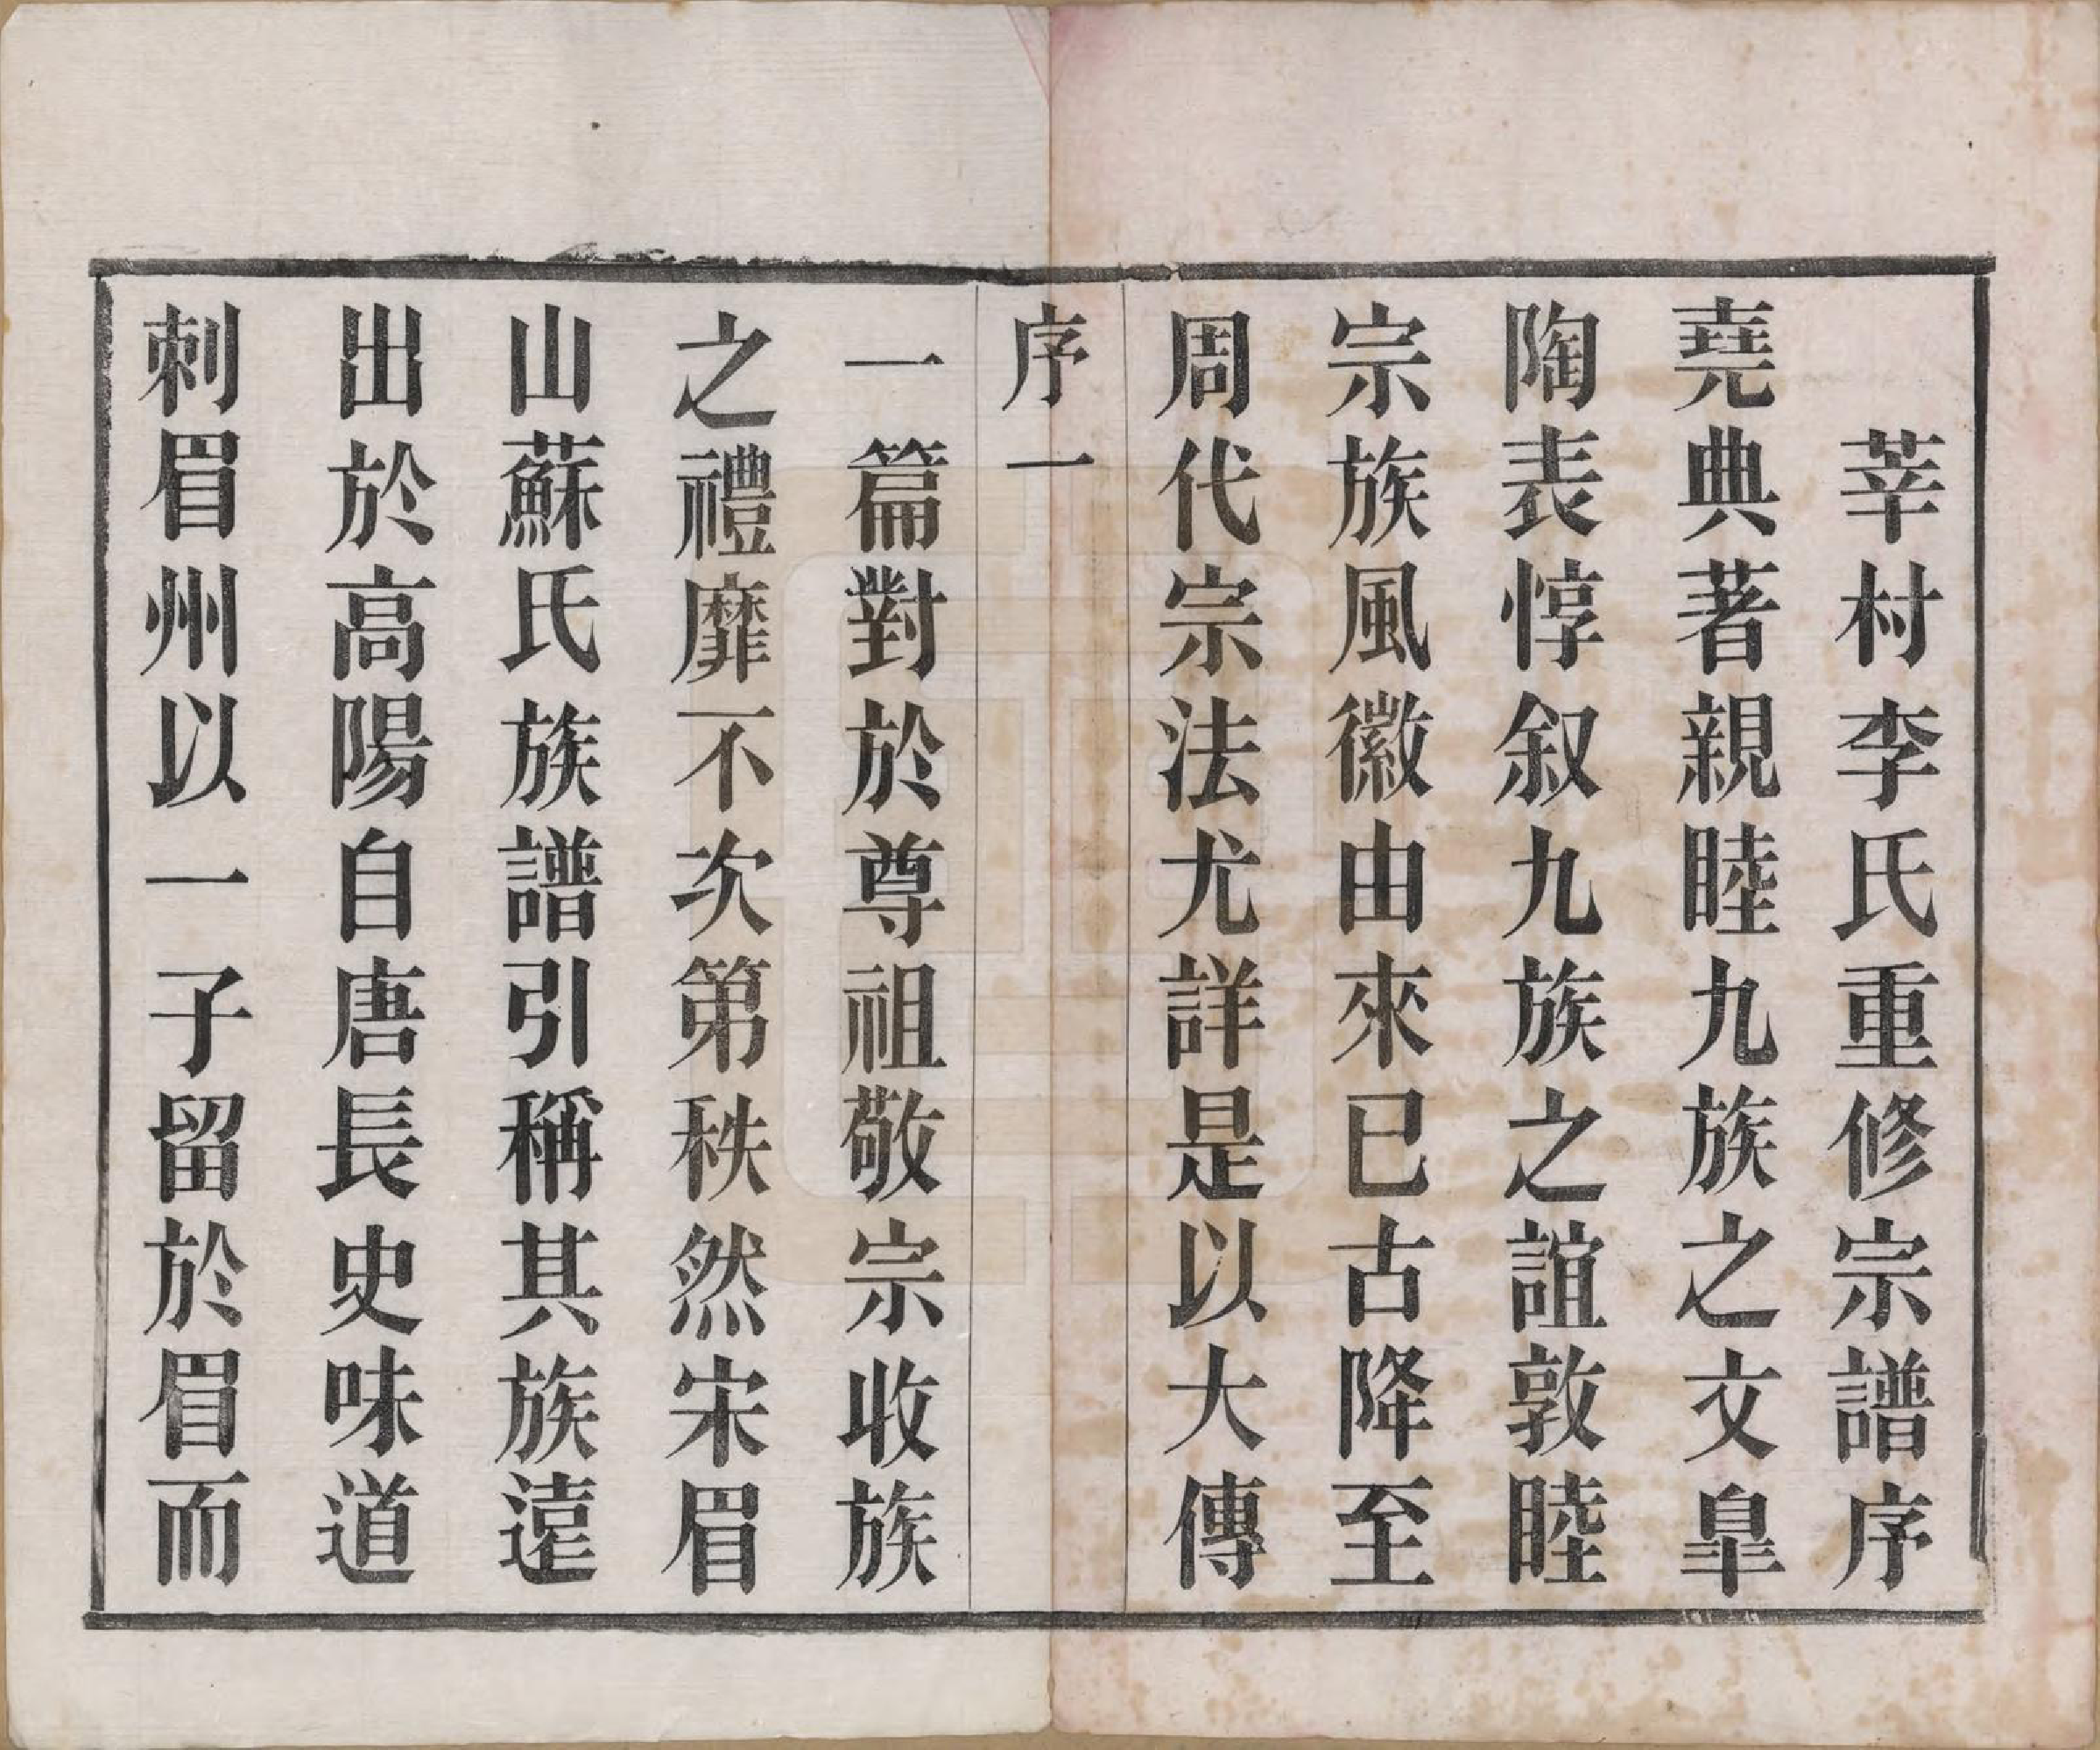 莘村李氏重修宗譜序
堯典著親睦九族之文臯
陶表惇叙九族之誼敦睦
宗族風徽由來已古降至
周代宗法尤詳是以大傳
序一
一篇對於尊祖敬宗收族
之禮靡不次第秩然宋眉
山蘇氏族譜引稱其族遠
出於高陽自唐長史味道
刺眉州以一子留於眉而